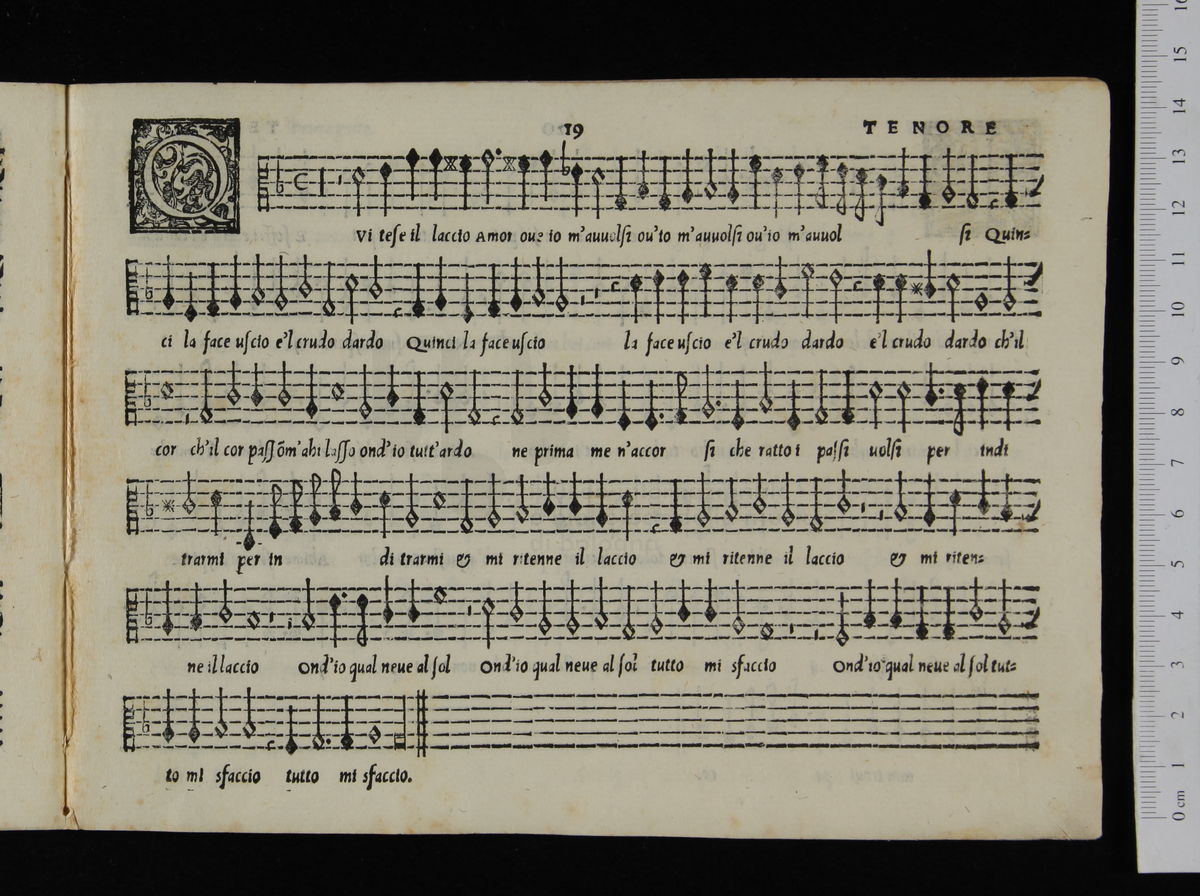 19 TENORE
QVi tese il laccio Amor oue io m'auuolsi ou'io m'auuolsi ou'io m'auuol si Quin=
ci la face uscio e'l crudo dardo Quinci la face uscio la face uscio e'l crudo dardo e'l crudo dardo ch'il
cor ch'il cor passõm'ahi lasso ond'io tutt'ardo ne prima me n'accor si che ratto i passi uolsi per indi
trarmi per in di trarmi & mi ritenne il laccio & mi ritenne il laccio & mi riten=
ne il laccio Ond'io qual neue al sol Ond'io qual neue al sol tutto mi sfaccio Ond'io qual neue al sol tut=
to mi sfaccio tutto mi sfaccio.
0 cm 1 2 3 4 5 6 7 8 9 10 11 12 13 14 15 16